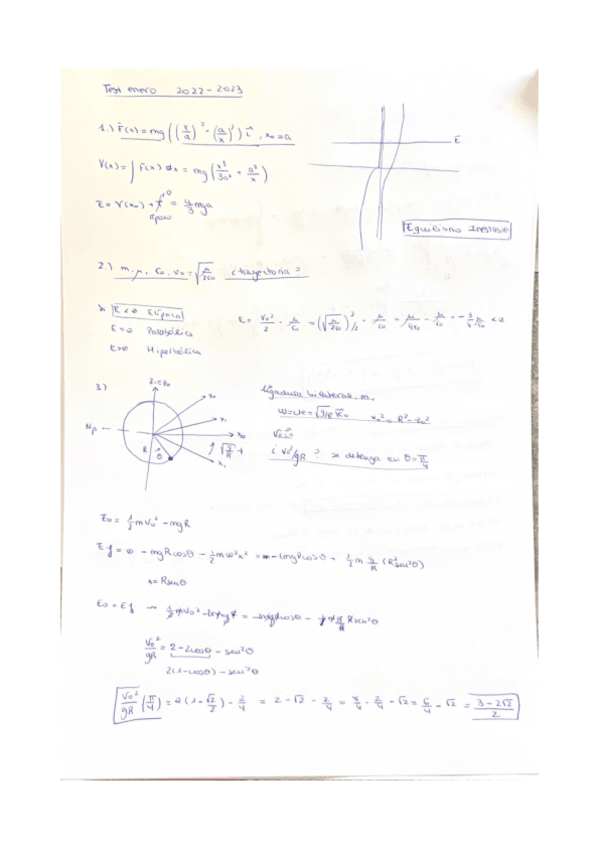 Test enero 2022-2023
1.) F(x) = mg((x/a)² - (a/x)²) i, x₀ = a
E
V(x) = ∫ F(x) dx = mg(x³/3a² + a²/x)
E = V(x₀) + T⁰ = 4/3 mga
reposo
Equilibrio Inestable
2.) m, μ, r₀, v₀ = √(μ/2r₀) ¿trayectoria?
E<0 Elíptica
E=0 Parabólica
E>0 Hiperbólica
E = v₀²/2 - μ/r₀ = (√(μ/2r₀))²/2 - μ/r₀ = μ/4r₀ - μ/r₀ = -3/4 μ/r₀ < 0
3.)
Z₁=Z₀
Y₀
Y₁
X₀
X₁
R
θ
√(g/R) t
ligadura bilateral m
ω = ωk = √(g/R) k₀
V₀ i
¿ V₀²/gR ? se detenga en θ = π/4
E₀ = 1/2 mV₀² - mgR
Ef = 0 - mgRcosθ - 1/2 mω²x² = -mgRcosθ - 1/2 m g/R (R² sen²θ)
x = Rsenθ
E₀ = Ef
V₀²/gR = 2-2cosθ - sen²θ
2(1-cosθ) - sen²θ
V₀²/gR (π/4) = 2(1-√2/2) - 2/4 = 2 - √2 - 2/4 = 8/4 - 2/4 - √2 = 6/4 - √2 = 3-2√2/2